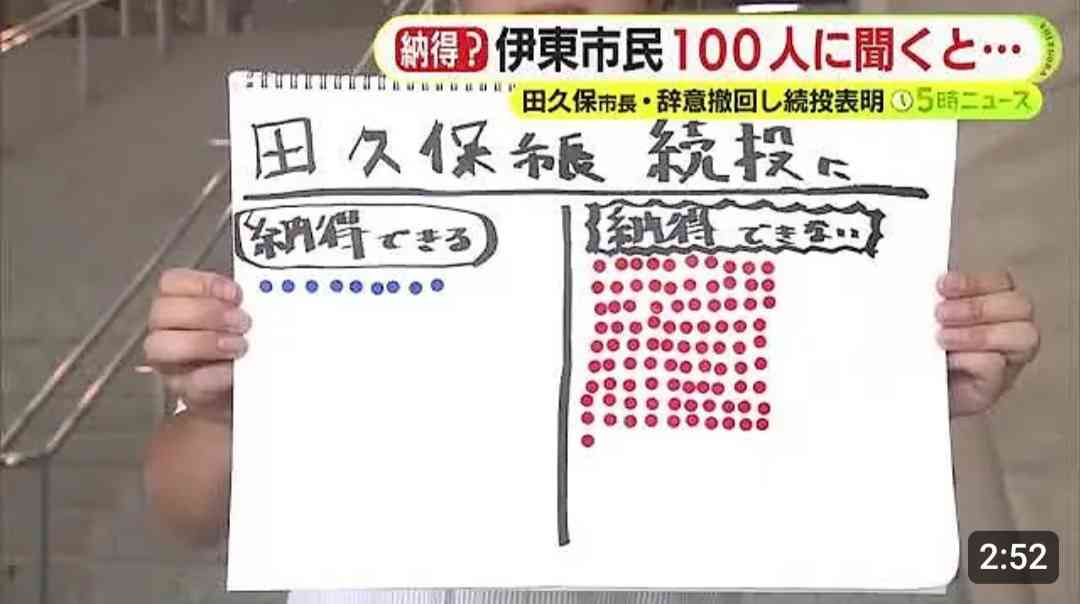 納得?伊東市民100人に聞くと…
田久保市長・辞意撤回し続投表明 5時ニュース
田久保市長 続投に
納得できる
納得できない
2:52